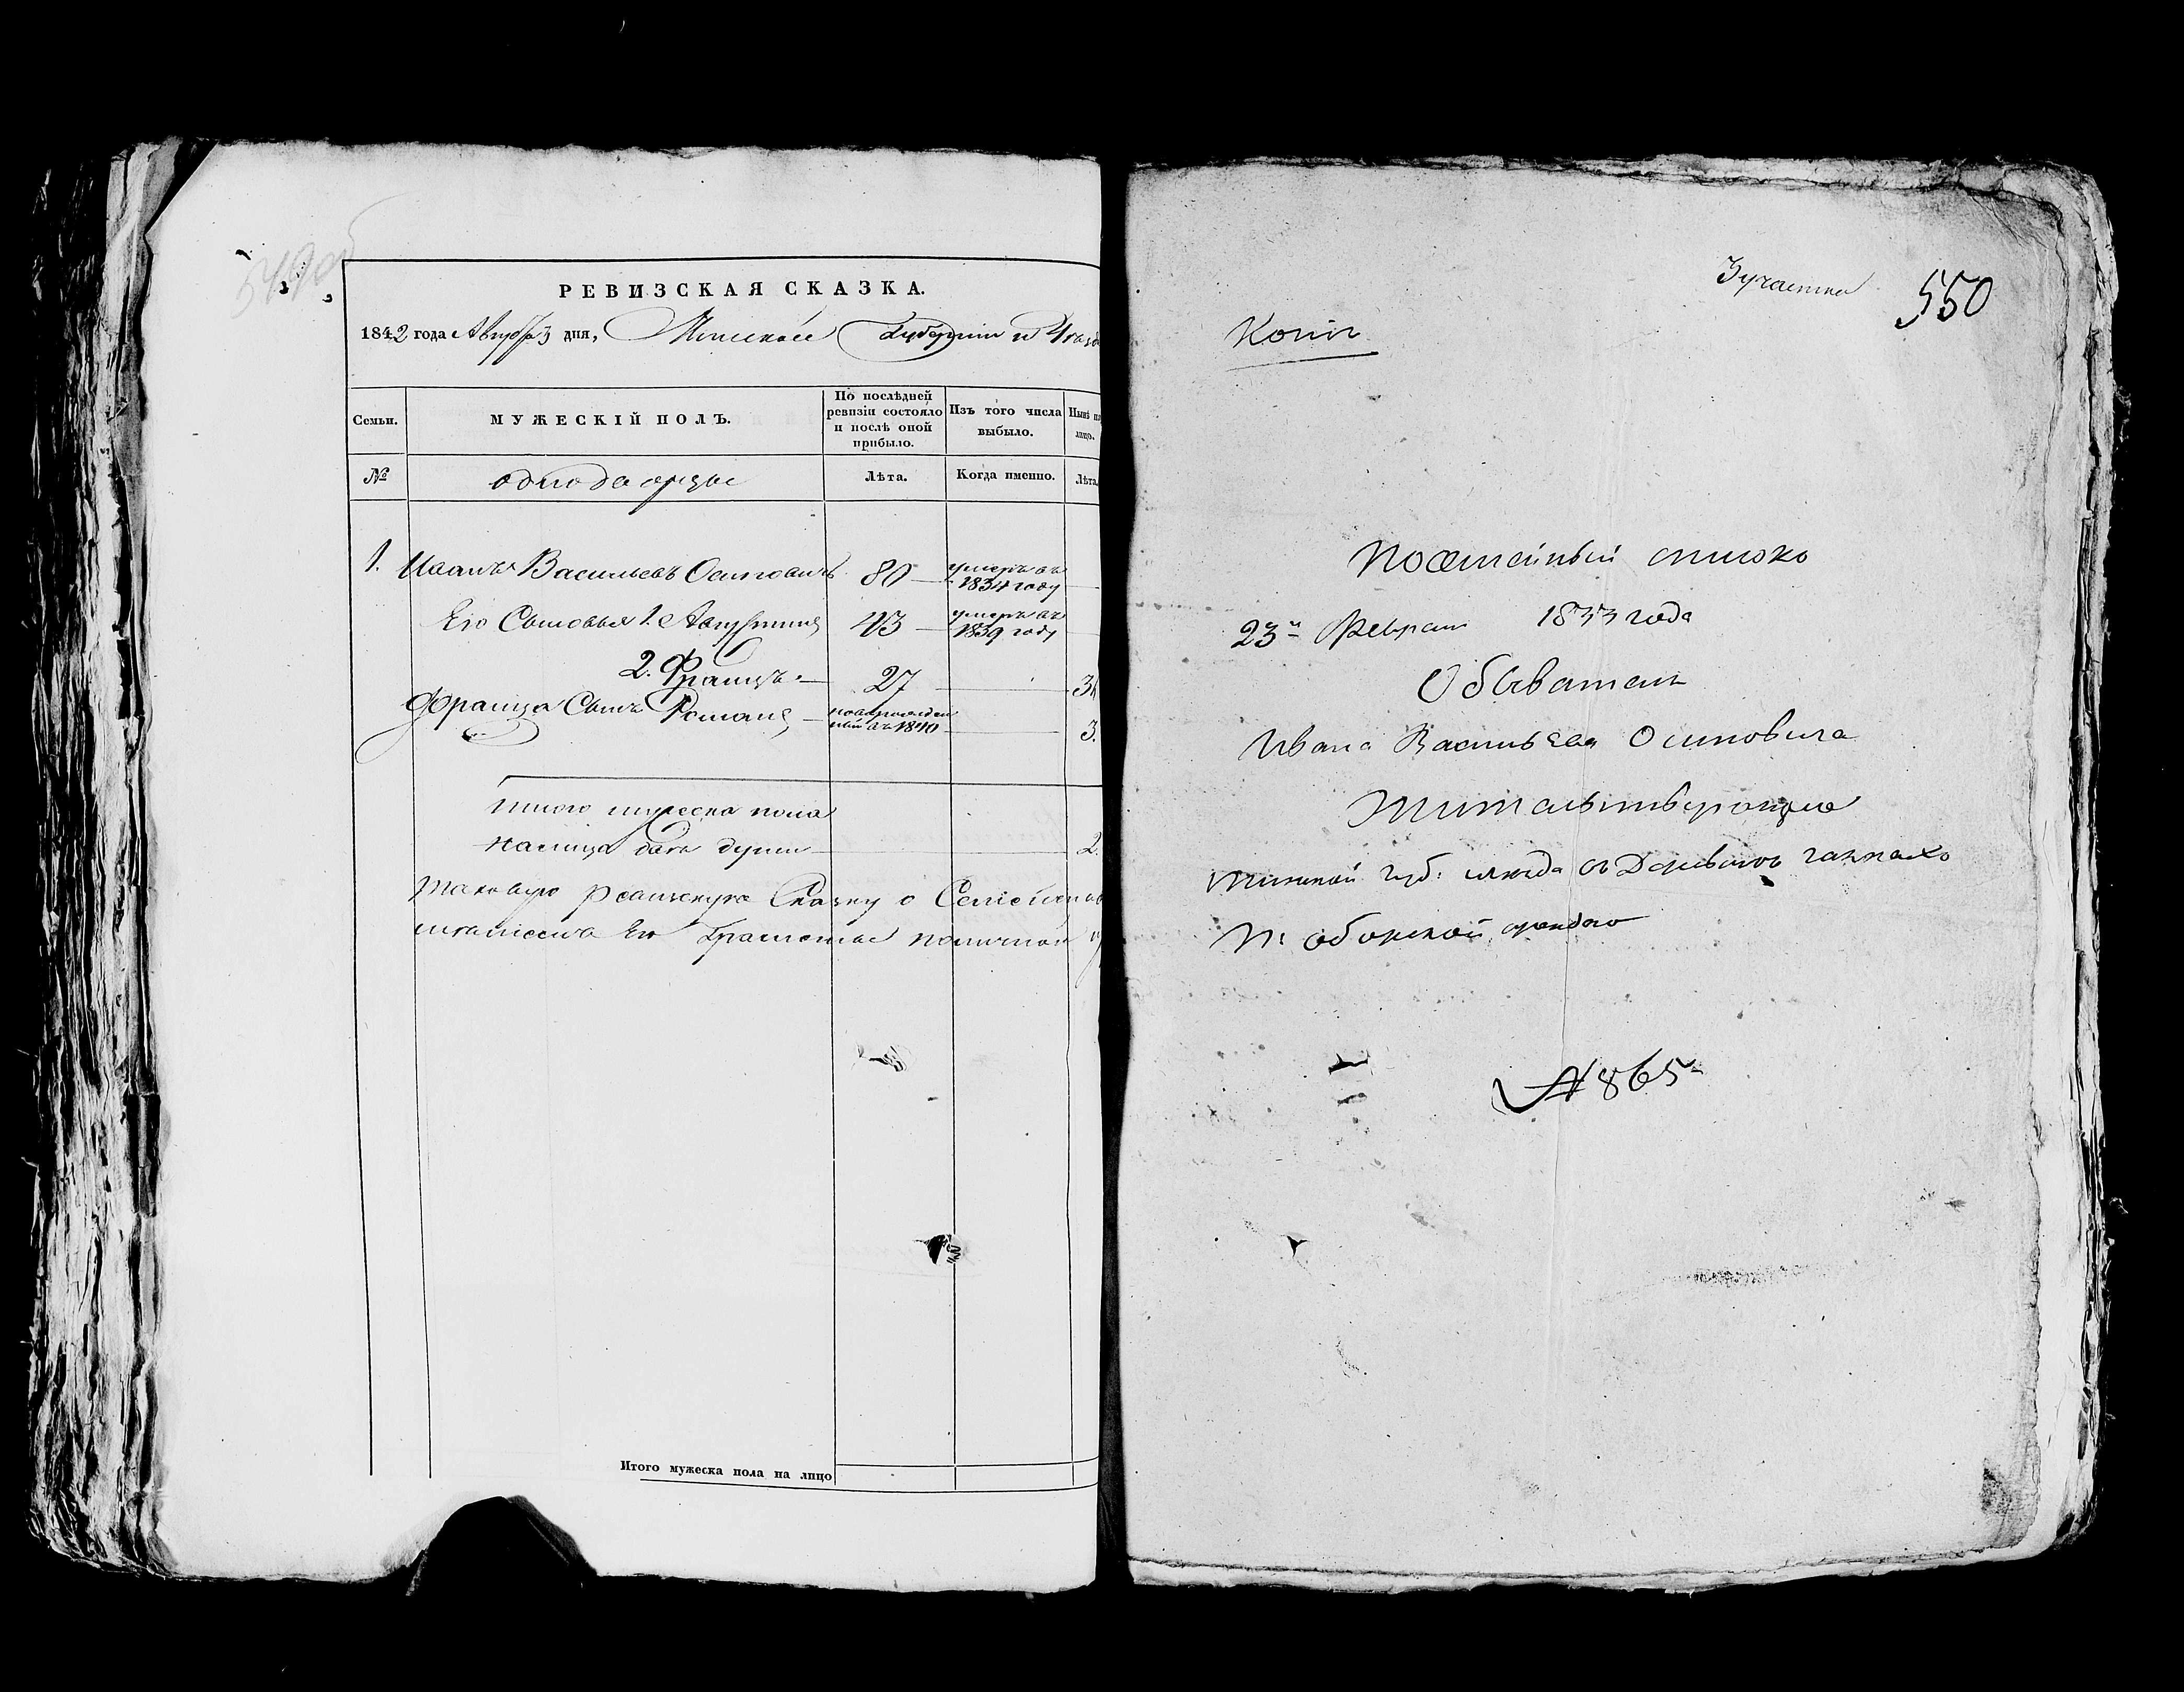 РЕВИЗСКАЯ СКАЗКА.
1842 года Августа 3 дня, Минской Губернии и
Семьи.
МУЖЕСКІЙ ПОЛЪ.
По послѣдней ревизіи состояло и послѣ оной прибыло.
Изъ того числа выбыло.
Нынѣ на лицо.
№
однодворцы
Лѣта.
Когда именно.
Лѣта.
1. Иванъ Васильевъ Осиповичъ 80 умеръ въ 1834 году
Его Сыновья 1. Августинъ 43 умеръ въ 1839 году
2. Францъ 27
Франца Сынъ Романъ новорожденный въ 1840 3.
Итого мужеска пола
налицо две души 2.
Таковую ревизскую Сказку о Семействе
Его Грамоты
Итого мужеска пола на лицо
3 участка
550
Копія
Посемейный списокъ
23 Февраля 1833 года
Обывателя
Ивана Васильева Осиповича
Жительствующаго
Минской губ: уезда въ Деревнѣ
№ 865